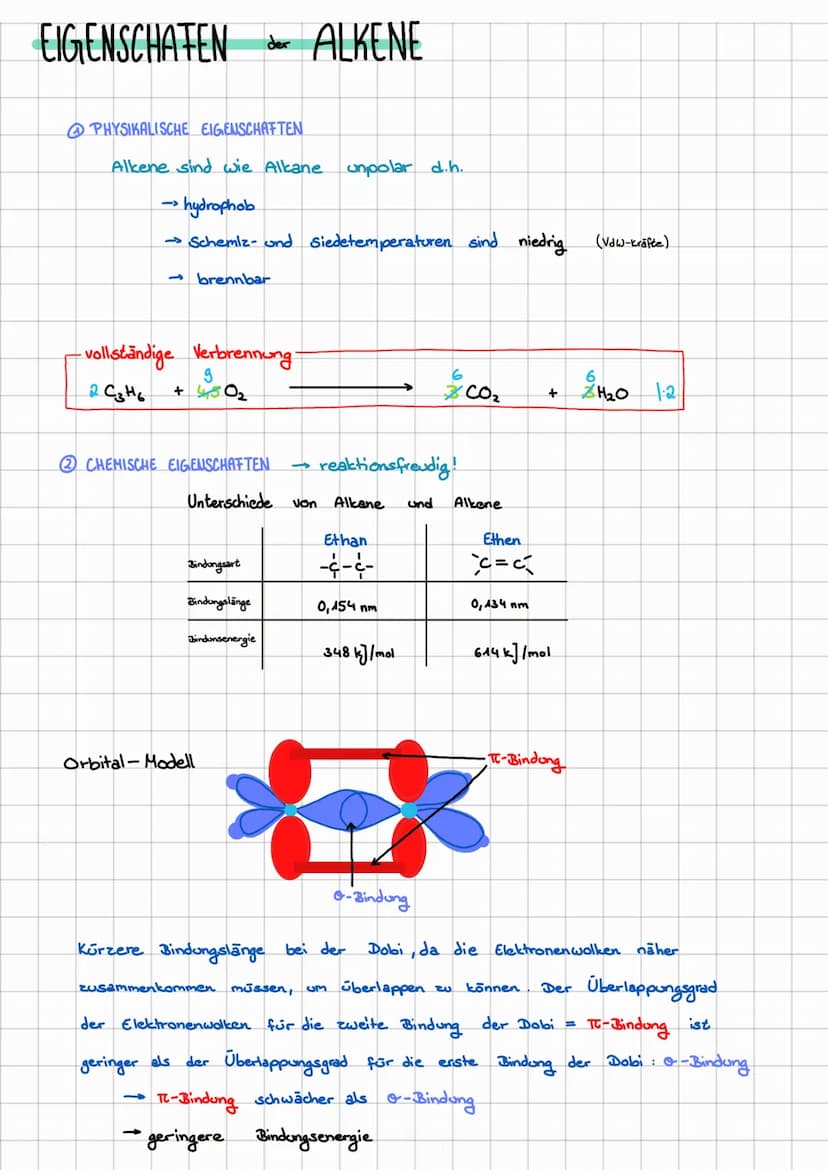 EIGENSCHAFEN der ALKENE
① PHYSIKALISCHE EIGENSCHAFTEN
Alkene sind wie Alkane unpolar d.h.
→ hydrophob
→ Schemlz- und Siedetemperaturen sind niedrig (VdW-Kräfte)
→ brennbar
vollständige Verbrennung
9 6 6
2 C₃H₆ + 4,5 O₂ → 3 CO₂ + 3 H₂O |·2
② CHEMISCHE EIGENSCHAFTEN → reaktionsfreudig!
Unterschiede von Alkane und Alkene
Ethan Ethen
Bindungsart -C-C- C=C
Bindungslänge 0,154 nm 0,134 nm
Bindunsenergie 348 kJ/mol 614 kJ/mol
Orbital-Modell
π-Bindung
σ-Bindung
Kürzere Bindungslänge bei der Dobi, da die Elektronenwolken näher
zusammenkommen müssen, um überlappen zu können. Der Überlappungsgrad
der Elektronenwolken für die zweite Bindung der Dobi = π-Bindung ist
geringer als der Überlappungsgrad für die erste Bindung der Dobi : σ-Bindung
→ π-Bindung schwächer als σ-Bindung
→ geringere Bindungsenergie